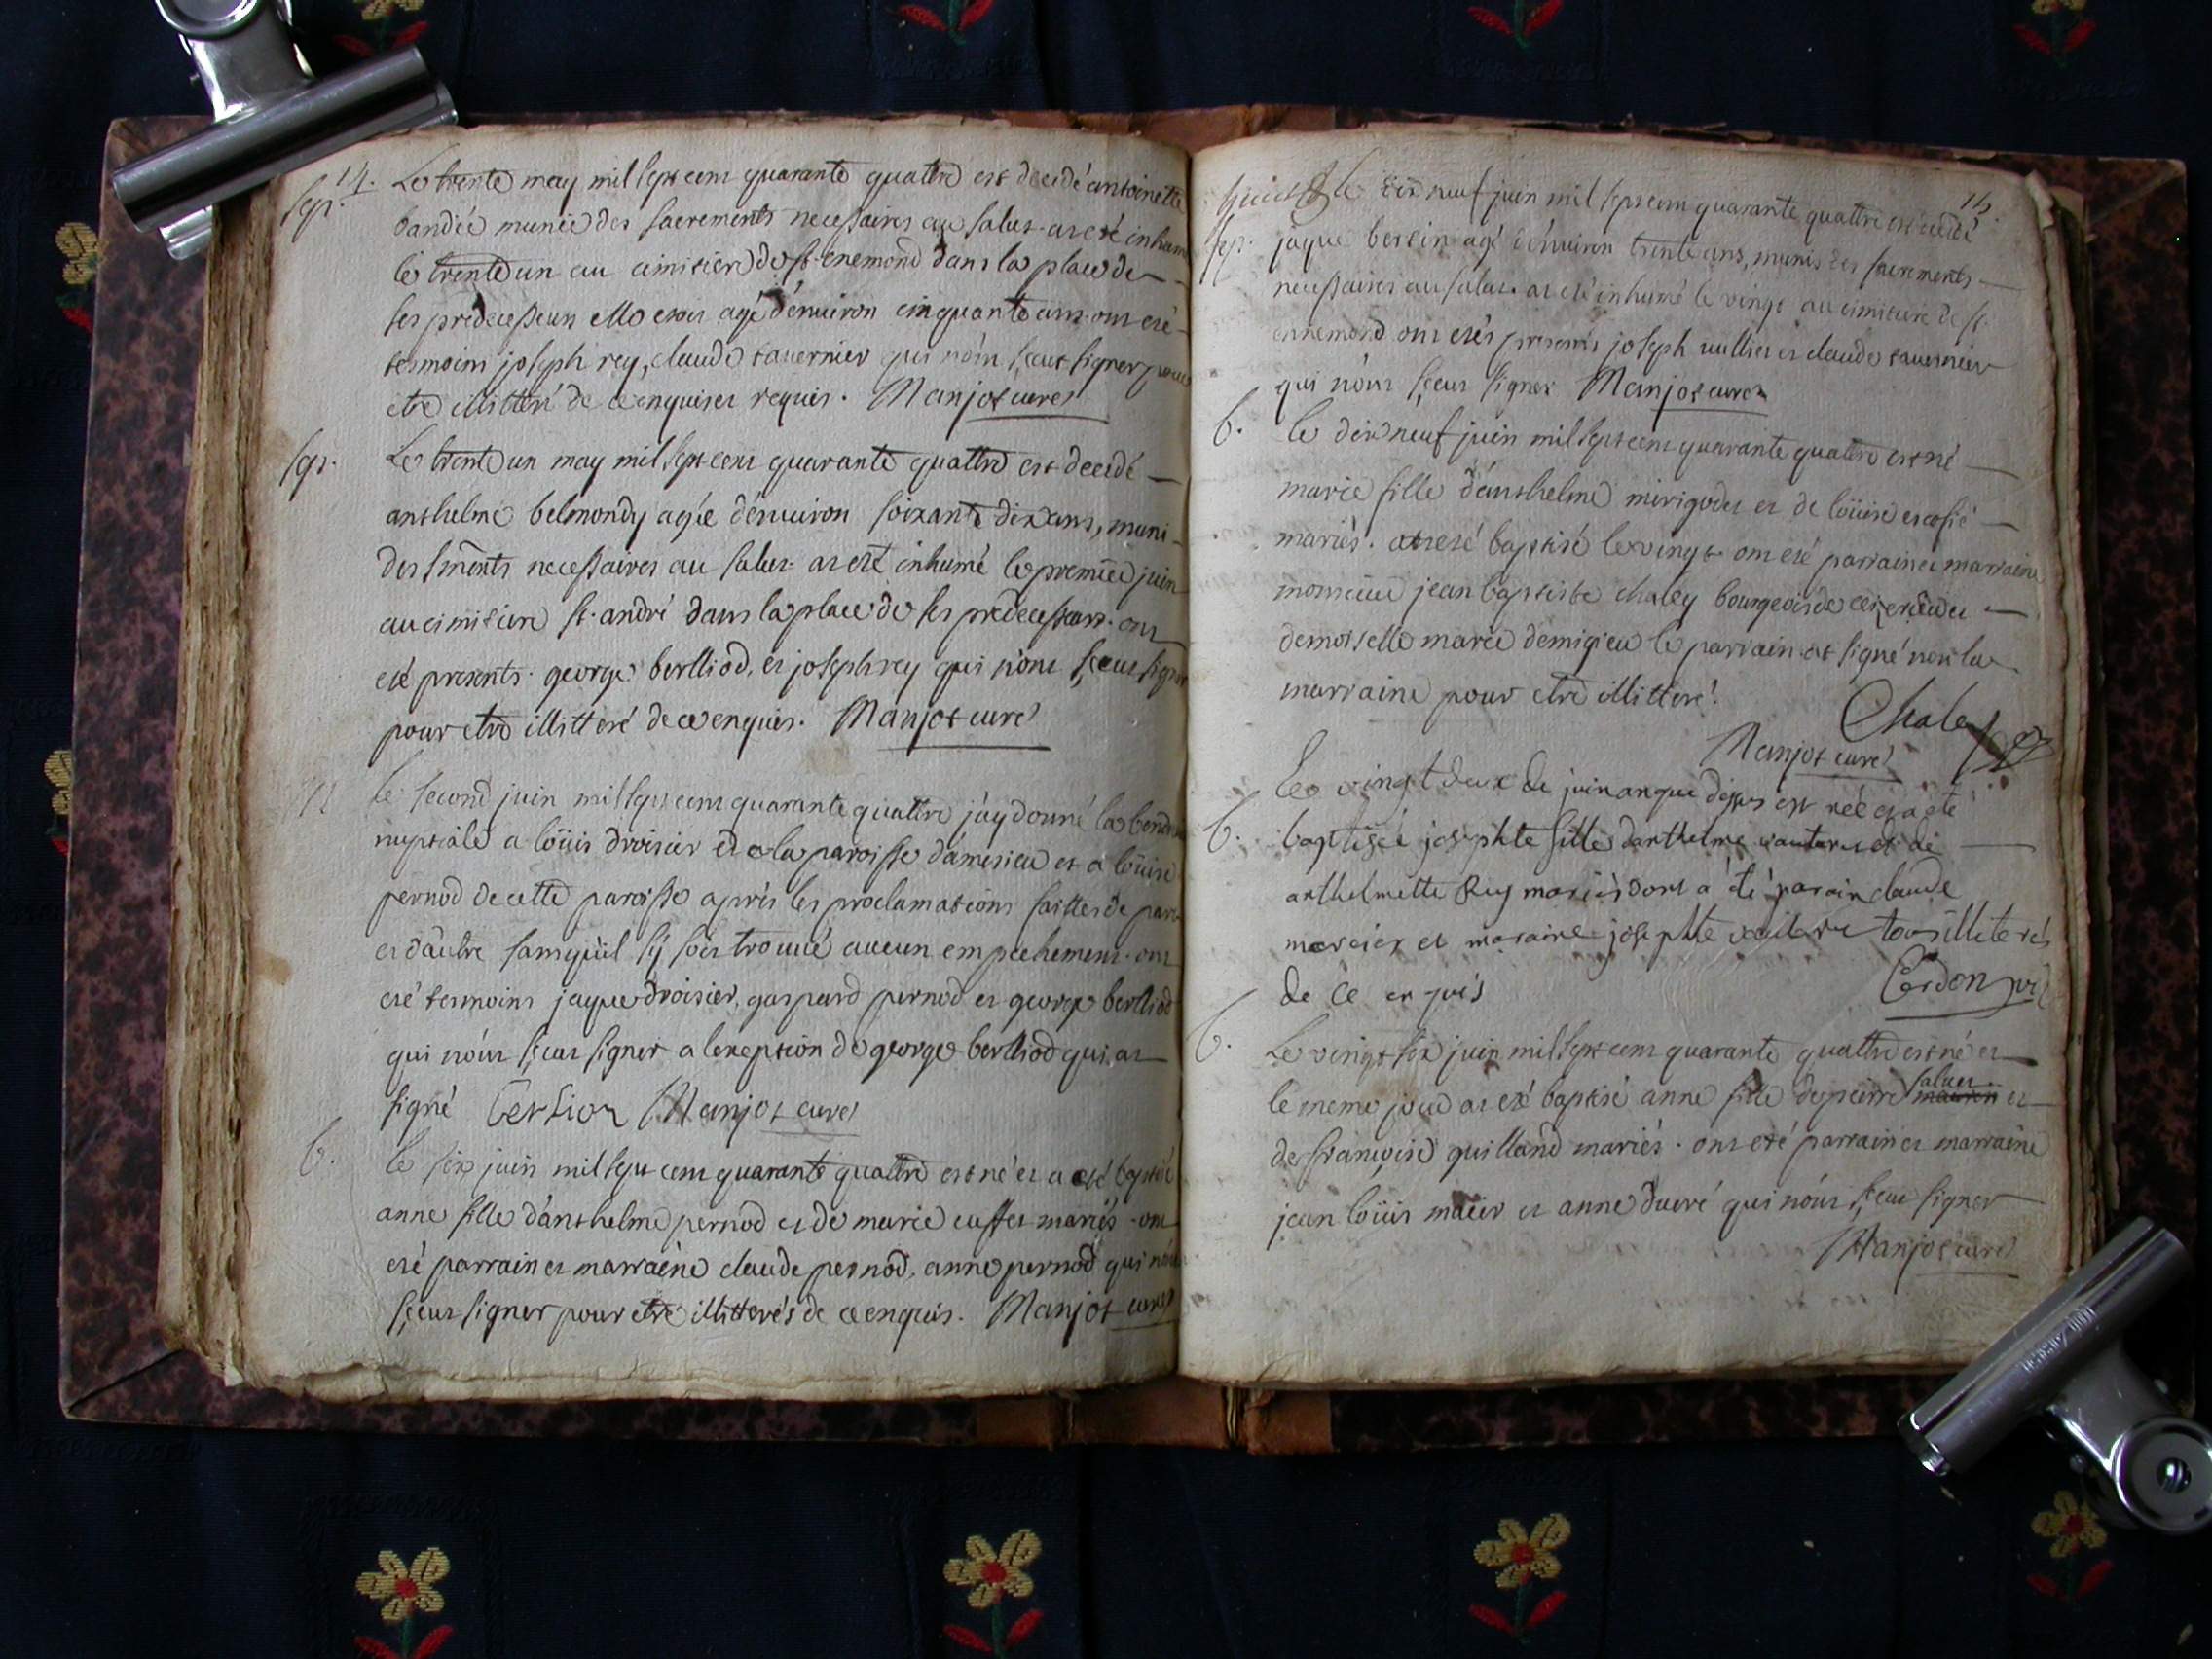 14.
sep. Le trente may mil sept cent quarante quattre est decedé antoinette
bandée munie des sacrements necessaires au salut. at eté inhum
le trente un au cimitiere de st. enemond dans la place de
ses predecesseurs elle etoit agé d'enuiron cinquante ans. ont eté
tesmoins joseph rey, claude tauernier qui n'ont sçeut signer pour
etre illitteré de ce enquis et requis. Manjot curé
sep. Le trente un may mil sept cent quarante quattre est decedé
anthelme belmondy agée d'enuiron soixante dix ans, muni
des sments necessaires au salut. at eté inhumé le premier juin
au cimitiere st. andré dans la place de ses predecesseurs. ont
eté presents george berlliod, et joseph rey qui n'ont sçeut signe
pour etre illitteré de ce enquis. Manjot curé
le second juin mil sept cent quarante quattre j'ay donné la bened
nuptiale a loüis droisier de la paroisse d'ameisieu et a loüise
pernod de cette paroisse aprés les proclamations faittes de part
et d'autre sans qu'il s'y soit trouué aucun empechement. ont
eté tesmoins jaque droisier, gaspard pernod et george berlliod
qui n'ont sçeut signer a l'exeption de george berlliod qui at
signé Berliou Manjot curé
b. le six juin mil sept cent quarante quattre est né et a eté baptisé
anne fille d'anthelme pernod et de marie cusset mariés. ont
eté parrain et marraine claude pernod, anne pernod qui n'ont
sçeut signer pour etre illitterés de ce enquis. Manjot curé
15.
le dix neuf juin mil sept cent quarante quattre est decedé
sep. jaque bertin agé d'enuiron trente ans, munis des sacrements
necessaires au salut. at eté inhumé le vingt au cimitiere de st.
ennemond ont etés presents joseph vulliet et claude tauernier
qui n'ont sçeut signer Manjot curé
b. le dix neuf juin mil sept cent quarante quattre est né
marie fille d'anthelme mirigodet et de loüise escofié
mariés. at eté baptisé le vingt. ont eté parrain et marraine
monsieur jean baptiste chaley bourgeois de ceizerieu et
demoiselle marie demigieu le parrain at signé non la
marraine pour etre illitteré.
Chaley
Manjot curé
Le vingt deux de juin an que dessus est née et a eté
b. baptisée josephte fille d'anthelme et de
anthelmette Rey mariés dont a été parain claude
mercier et maraine josephte tous illiterés
de ce enquis Cerdon
b. Le vingt six juin mil sept cent quarante quattre est né et
le meme jour at eté baptisé anne fille de pierre saluet et
de françoise quilland mariés. ont eté parrain et marraine
jean loüis maier et anne ducré qui n'ont sçeut signer
Manjot curé